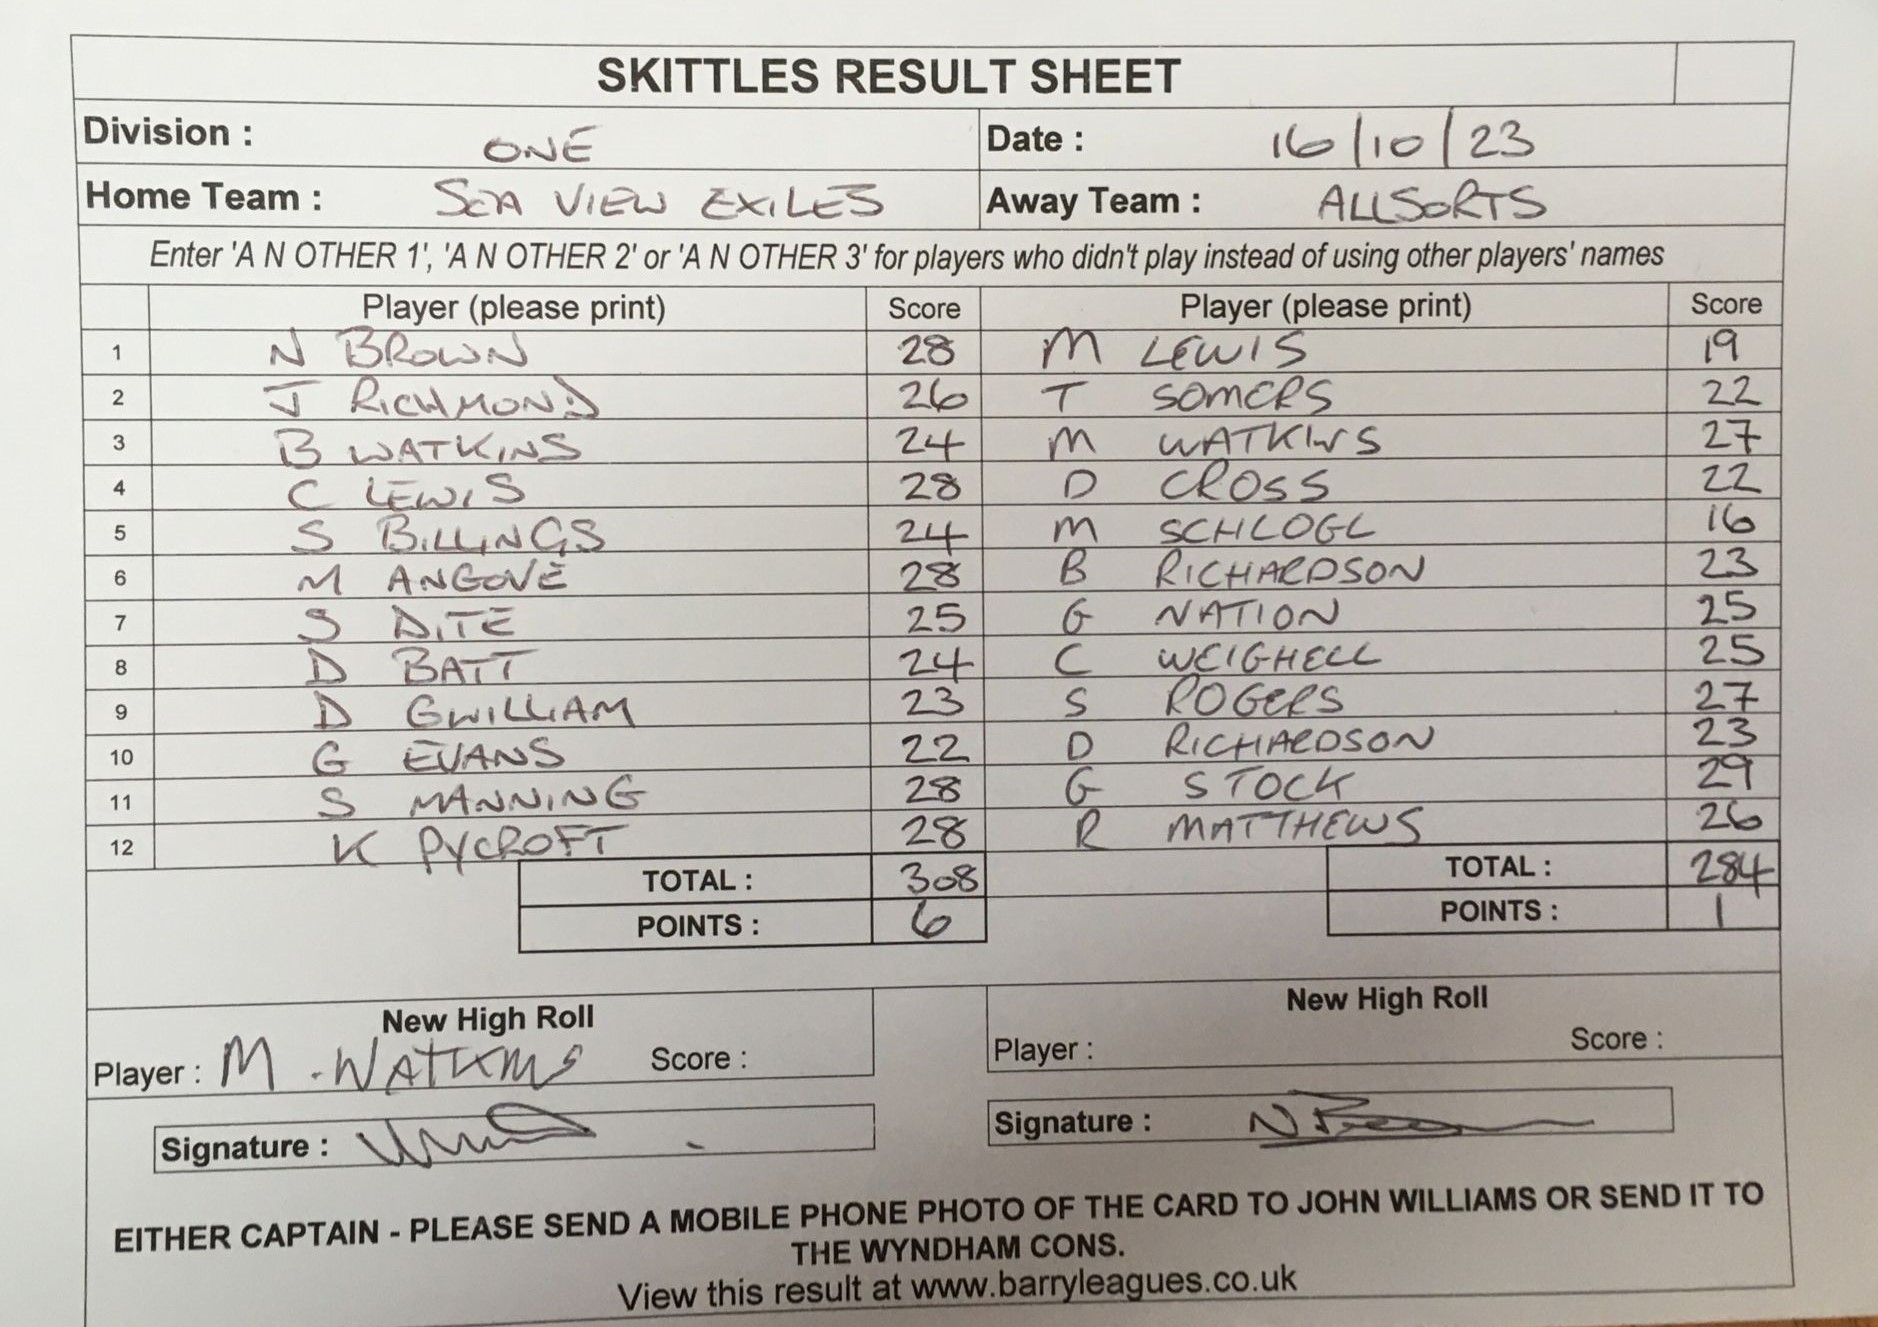 SKITTLES RESULT SHEET
Division : ONE Date : 16/10/23
Home Team : SEA VIEW EXILES Away Team : ALLSORTS
Enter 'A N OTHER 1', 'A N OTHER 2' or 'A N OTHER 3' for players who didn't play instead of using other players' names
Player (please print) Score Player (please print) Score
1 N BROWN 28 M LEWIS 19
2 J RICHMOND 26 T SOMERS 22
3 B WATKINS 24 M WATKINS 27
4 C LEWIS 28 D CROSS 22
5 S BILLINGS 24 M SCHLOGL 16
6 M ANGOVE 28 B RICHARDSON 23
7 S DITE 25 G NATION 25
8 D BATT 24 C WEIGHELL 25
9 D GWILLIAM 23 S ROGERS 27
10 G EVANS 22 D RICHARDSON 23
11 S MANNING 28 G STOCK 29
12 K PYCROFT 28 R MATTHEWS 26
TOTAL : 308 TOTAL : 284
POINTS : 6 POINTS : 1
New High Roll New High Roll
Player : M. WATKINS Score : Player : Score :
Signature : Signature :
EITHER CAPTAIN - PLEASE SEND A MOBILE PHONE PHOTO OF THE CARD TO JOHN WILLIAMS OR SEND IT TO
THE WYNDHAM CONS.
View this result at www.barryleagues.co.uk